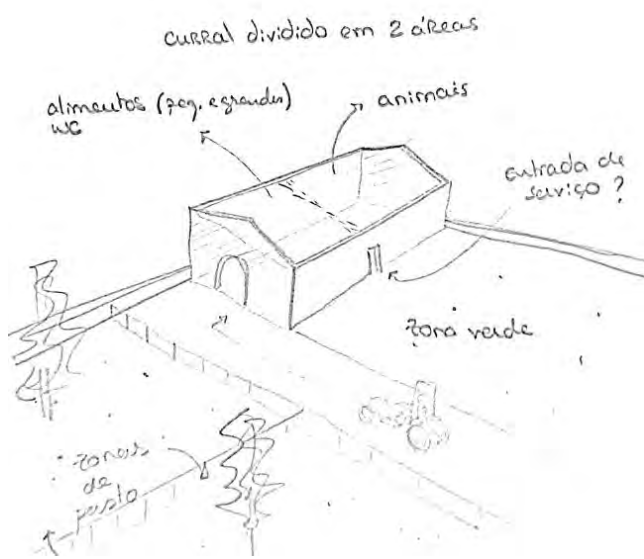 CURRAL dividido em 2 áreas
alimentos (peq. e grandes)
WC
animais
entrada de
serviço ?
zona verde
zonas
de
pasto